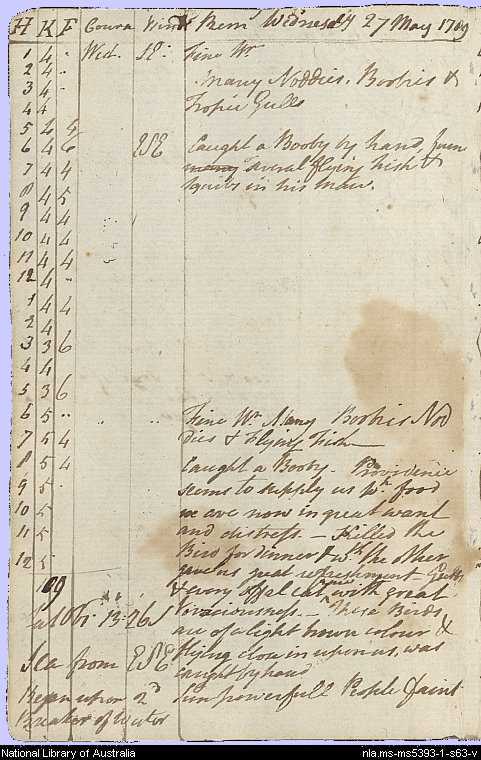 H K F Cours Winds Rem Wednesday 27 May 1789
1 4 .. West SE: Fine Wr
2 4 ..
3 4 .. Many Noddies. Boobies &
4 4 Tropic Gulls
5 4 4
6 4 6 ESE Caught a Booby by hand, found
7 4 4 many several flying fish &
8 4 5 squibs in his maw.
9 4 4
10 4 4
11 4 4
12 4 -
1 4 4
2 4
3 3 6
4 4
5 3 6
6 5 .. " " Fine Wr Many Boobies Nod
7 5 4 dies & Flying Fish
8 5 4 Caught a Booby. Providence
9 5 seems to supply us wh food
10 5 we are now in great want
11 5 and distress. — Killed the
12 5 Bird for dinner & wh the other
109 gave us great refreshment Guts
& every Offal eat with great
Lat Obs. 13:26 S Voraciousness. — These Birds
are of a light brown colour &
Sea from ESE flying close in upon us, was
caught by hand
Began upon 2d Sun powerfull People faint
Breaker of Water
National Library of Australia
nla.ms-ms5393-1-s63-v